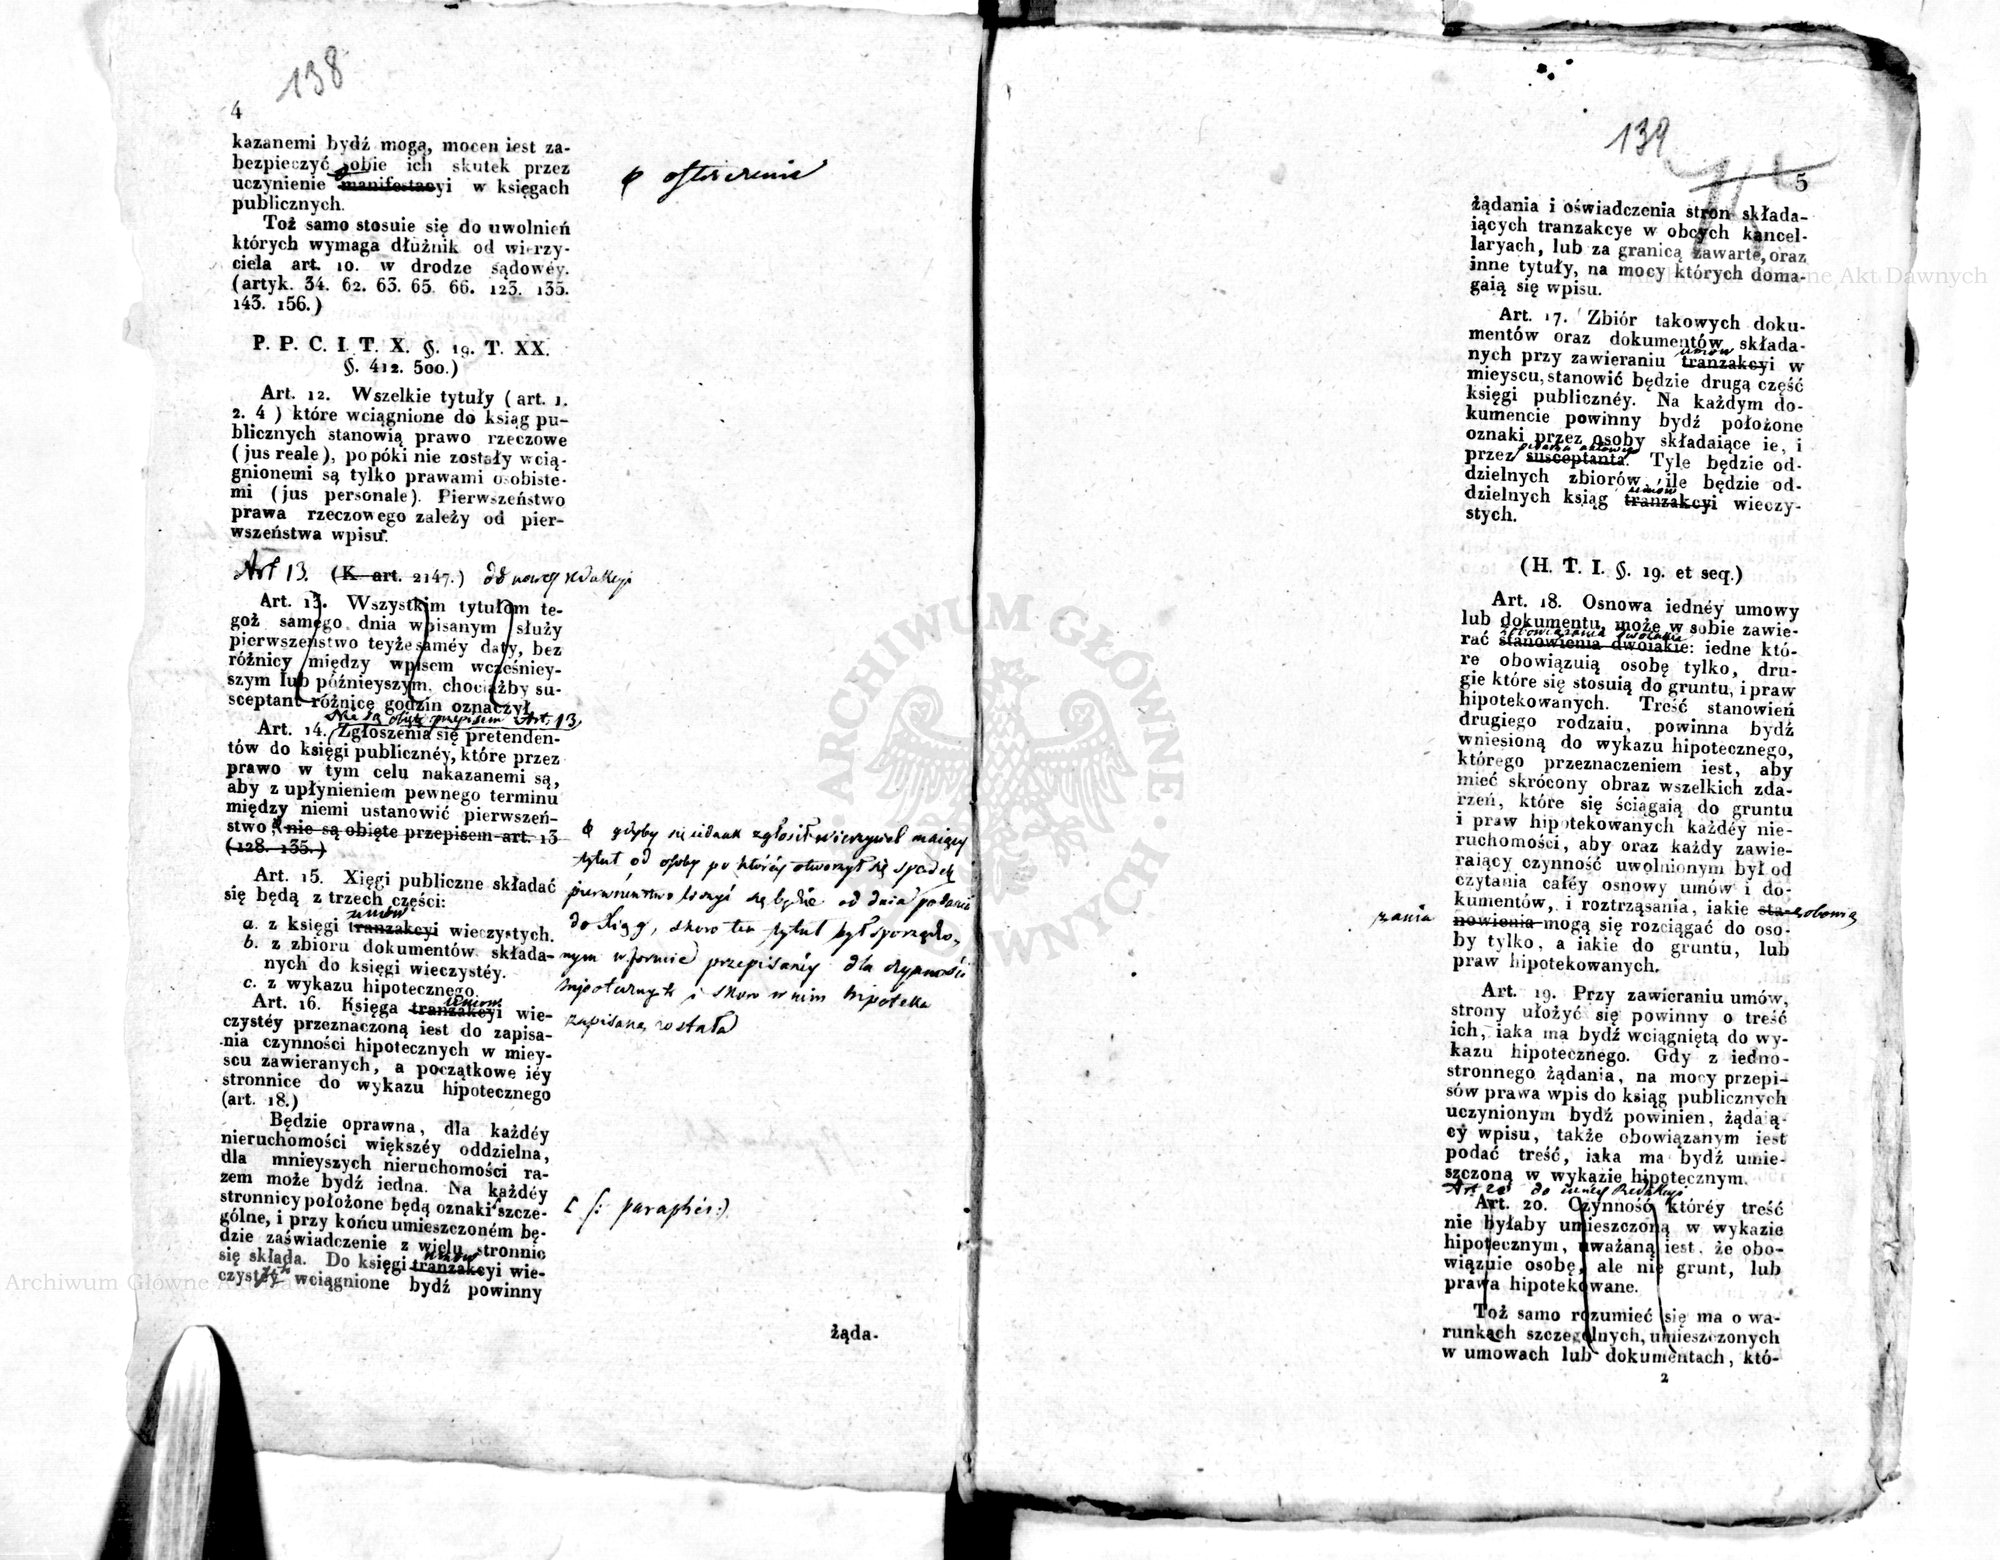 138
4
kazanemi bydź mogą, mocen iest za-
bezpieczyć sobie ich skutek przez
uczynienie manifestacyi w księgach
publicznych.
ostrzeżenie
Toż samo stosuie się do uwolnień
których wymaga dłużnik od wierzy-
ciela art. 10. w drodze sądowéy.
(artyk. 34. 62. 63. 65. 66. 123. 135.
143. 156.)
P. P. C. I. T. X. §. 19. T. XX.
§. 412. 500.)
Art. 12. Wszelkie tytuły (art. 1.
2. 4) które wciągnione do ksiąg pu-
blicznych stanowią prawo rzeczowe
(jus reale), popóki nie zostały wcią-
gnionemi są tylko prawami osobiste-
mi (jus personale). Pierwszeństwo
prawa rzeczowego zależy od pier-
wszeństwa wpisu.
Art 13. (K. art. 2147.) do nowey redakcyi
Art. 13. Wszystkim tytułom te-
goż samego dnia wpisanym służy
pierwszeństwo teyże saméy daty, bez
różnicy między wpisem wcześniey-
szym lub późnieyszym, chociażby su-
sceptant różnicę godzin oznaczył.
Nie są objęte przepisem Art. 13
Art. 14. Zgłoszenia się pretenden-
tów do księgi publicznéy, które przez
prawo w tym celu nakazanemi są,
aby z upłynieniem pewnego terminu
między niemi ustanowić pierwszeń-
stwo, nie są obięte przepisem art. 13
(128. 135.)
gdyby się iednak zgłosił wierzyciel maiący
tytuł od osoby po któréy otworzył się spadek
pierwszeństwo liczyć się będzie od dnia podania
do Xiąg, skoro ten tytuł był sporządzo-
nym w formie przepisanéy dla czynności
hipotecznych i skoro w nim hipoteka
zapisaną została
Art. 15. Xięgi publiczne składać
się będą z trzech części:
umów
a. z księgi tranzakcyi wieczystych.
b. z zbioru dokumentów składa-
nych do księgi wieczystéy.
c. z wykazu hipotecznego.
umów
Art. 16. Księga tranzakcyi wie-
czystéy przeznaczoną iest do zapisa-
nia czynności hipotecznych w miey-
scu zawieranych, a początkowe iéy
stronnice do wykazu hipotecznego
(art. 18.)
Będzie oprawna, dla każdéy
nieruchomości większéy oddzielna,
dla mnieyszych nieruchomości ra-
zem może bydź iedna. Na każdéy
stronnicy położone będą oznaki szcze-
gólne, i przy końcu umieszczoném bę-
dzie zaświadczenie z wielu stronnic
(: paraphes :)
umów
się składa. Do księgi tranzakcyi wie-
czystéy wciągnione bydź powinny
żąda-
139
5
żądania i oświadczenia stron składa-
iących tranzakcye w obcych kancel-
laryach, lub za granicą zawarte, oraz
inne tytuły, na mocy których doma-
gaią się wpisu.
Art. 17. Zbiór takowych doku-
mentów oraz dokumentów składa-
umów
nych przy zawieraniu tranzakcyi w
mieyscu, stanowić będzie drugą część
księgi publicznéy. Na każdym do-
kumencie powinny bydź położone
oznaki przez osoby składaiące ie, i
pisarza aktowego
przez susceptanta. Tyle będzie od-
dzielnych zbiorów, ile będzie od-
umów
dzielnych ksiąg tranzakcyi wieczy-
stych.
(H. T. I. §. 19. et seq.)
Art. 18. Osnowa iednéy umowy
lub dokumentu, może w sobie zawie-
zobowiązania dwoiakie
rać stanowienia dwoiakie: iedne któ-
re obowiązuią osobę tylko, dru-
gie które się stosuią do gruntu, i praw
hipotekowanych. Treść stanowień
drugiego rodzaiu, powinna bydź
wniesioną do wykazu hipotecznego,
którego przeznaczeniem iest, aby
mieć skrócony obraz wszelkich zda-
rzeń, które się ściągaią do gruntu
i praw hipotekowanych każdéy nie-
ruchomości, aby oraz każdy zawie-
raiący czynność uwolnionym był od
czytania całéy osnowy umów i do-
kumentów, i roztrząsania, iakie sta-
nowienia mogą się rozciągać do oso-
by tylko, a iakie do gruntu, lub
praw hipotekowanych.
Art. 19. Przy zawieraniu umów,
strony ułożyć się powinny o treść
ich, iaka ma bydź wciągniętą do wy-
kazu hipotecznego. Gdy z iedno-
stronnego żądania, na mocy przepi-
sów prawa wpis do ksiąg publicznych
uczynionym bydź powinien, żądaią-
cy wpisu, także obowiązanym iest
podać treść, iaka ma bydź umie-
szczoną w wykazie hipotecznym.
Art. 20. Czynność któréy treść
nie byłaby umieszczoną w wykazie
hipotecznym, uważaną iest, że obo-
wiązuie osobę, ale nie grunt, lub
prawa hipotekowane.
Toż samo rozumieć się ma o wa-
runkach szczególnych, umieszczonych
w umowach lub dokumentach, któ-
2
ARCHIWUM GŁÓWNE AKT DAWNYCH
Archiwum Główne Akt Dawnych
Archiwum Główne Akt Dawnych